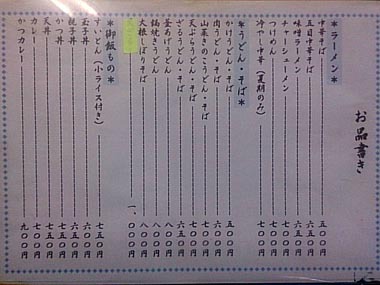 お品書き
＊ラーメン＊
中華そば 五〇〇円
五目中華そば 六五〇円
味噌ラーメン 六五〇円
チャーシューメン 七〇〇円
つけめん 七〇〇円
冷やし中華（夏期のみ） 七〇〇円
＊うどん・そば＊
かけうどん・そば 五〇〇円
肉うどん・そば 六〇〇円
山菜きのこうどん・そば 七〇〇円
天ぷらうどん・そば 七〇〇円
ざるうどん・そば 六五〇円
釜あげうどん 八〇〇円
鍋焼きうどん 八〇〇円
大根しぼりそば 八〇〇円
一、〇〇〇円
＊御飯もの＊
すいとん（小ライス付き） 七五〇円
玉子丼 六〇〇円
親子丼 六五〇円
かつ丼 七五〇円
天丼 七五〇円
カレー 七五〇円
かつカレー 九〇〇円